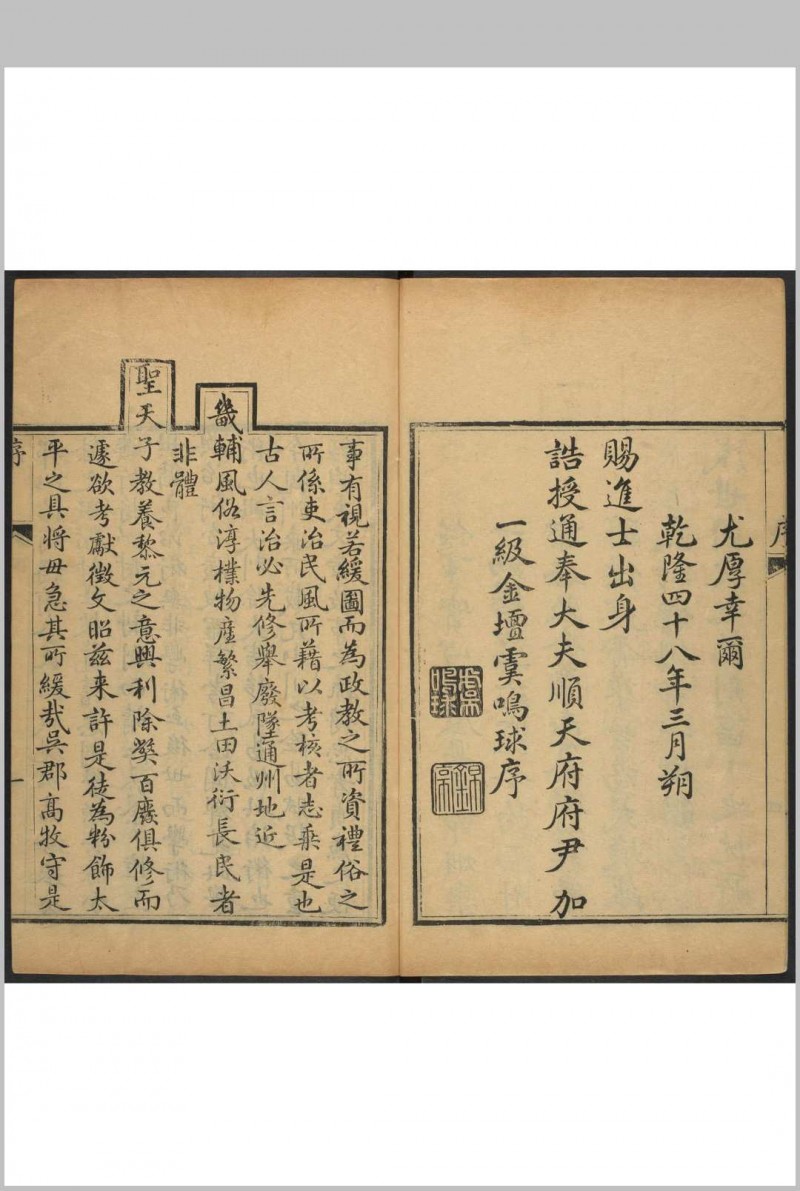 序
尤厚幸爾
乾隆四十八年三月朔
賜進士出身
誥授通奉大夫順天府府尹加
一級金壇虞鳴球序
事有視若緩圖而為政教之所資禮俗之
所係吏治民風所藉以考核者志乘是也
古人言治必先修舉廢墜通州地近
畿輔風俗淳樸物產繁昌土田沃衍長民者
非體
聖天子教養黎元之意興利除獘百廢俱修而
遽欲考獻徵文昭茲来許是徒為粉飾太
平之具將毋急其所緩哉吳郡高牧守是
序
一